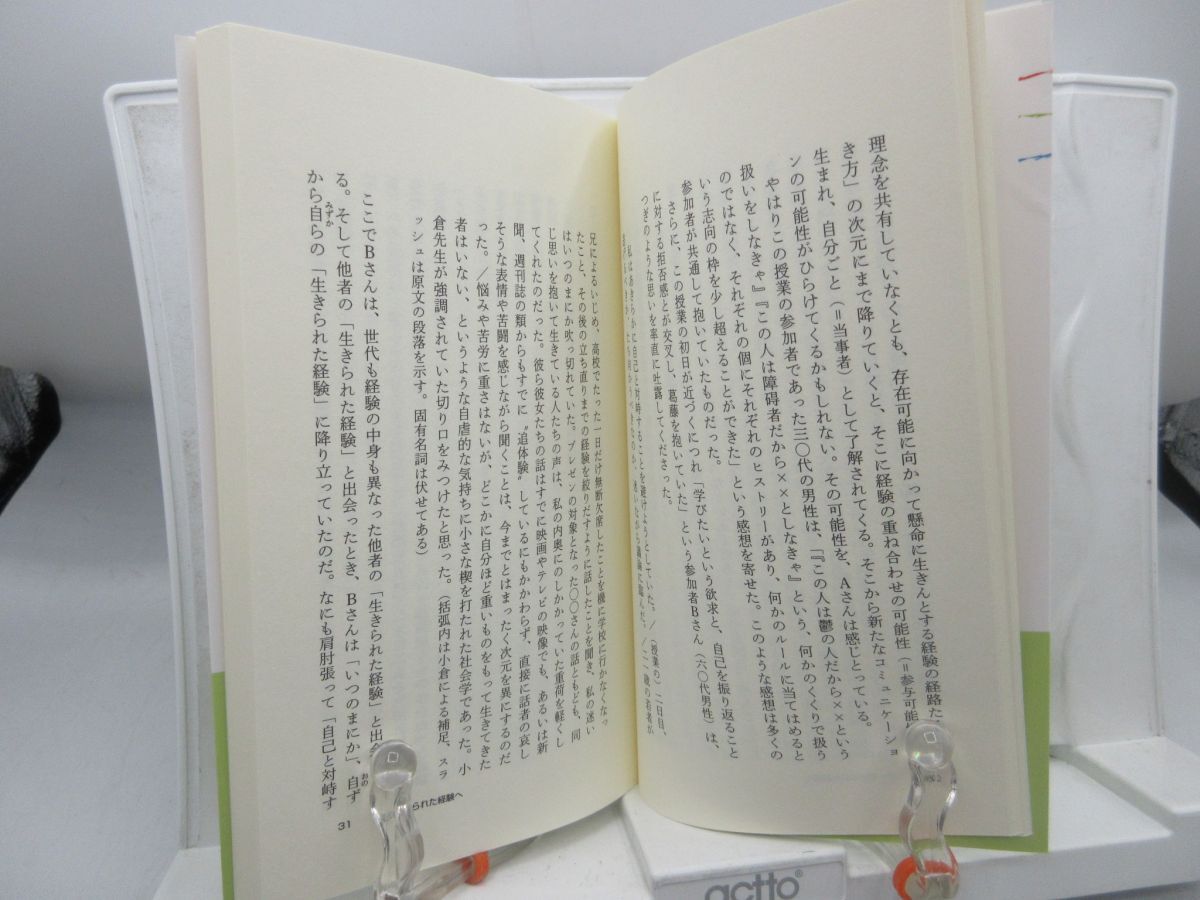 理念を共有していなくとも、存在可能に向かって懸命に生きんとする経験の経路た
き方」の次元にまで降りていくと、そこに経験の重ね合わせの可能性（＝参与可能性
生まれ、自分ごと（＝当事者）として了解されてくる。そこから新たなコミュニケーショ
ンの可能性がひらけてくるかもしれない。その可能性を、Aさんは感じとっている。
やはりこの授業の参加者であった三〇代の男性は、「『この人は鬱の人だから××という
扱いをしなきゃ』『この人は障碍者だから××としなきゃ』という、何かのくくりで扱う
のではなく、それぞれの個にそれぞれのヒストリーがあり、何かのルールに当てはめると
いう志向の枠を少し超えることができた」という感想を寄せた。このような感想は多くの
参加者が共通して抱いていたものだった。
さらに、この授業の初日が近づくにつれ「学びたいという欲求と、自己を振り返ること
に対する拒否感とが交叉し、葛藤を抱いていた」という参加者Bさん（六〇代男性）は、
つぎのような思いを率直に吐露してくださった。
私はあきらかに自己と対峙することを避けようとしていた。／（授業の）二日目、
兄によるいじめ、高校でたった一日だけ無断欠席したことを機に学校に行かなくなっ
たこと、その後の立ち直りまでの経験を絞りだすように話したことを聞き、私の迷い
はいつのまにか吹っ切れていた。プレゼンの対象となった〇〇さんの話ともども、同
じ思いを抱いて生きている人たちの声は、私の内奥にのしかかっていた重荷を軽くし
てくれたのだった。彼ら彼女たちの話はすでに映画やテレビの映像でも、あるいは新
聞、週刊誌の類からもすでに〝追体験〟しているにもかかわらず、直接に話者の哀し
そうな表情や苦闘を感じながら聞くことは、今までとはまったく次元を異にするのだ
った。／悩みや苦労に重さはないが、どこかに自分ほど重いものをもって生きてきた
者はいない、というような自虐的な気持ちに小さな楔を打たれた社会学であった。小
倉先生が強調されていた切り口をみつけたと思った。（括弧内は小倉による補足、スラ
ッシュは原文の段落を示す。固有名詞は伏せてある）
ここでBさんは、世代も経験の中身も異なった他者の「生きられた経験」と出会
る。そして他者の「生きられた経験」と出会ったとき、Bさんは「いつのまにか」、自ず
から自らの「生きられた経験」に降り立っていたのだ。なにも肩肘張って「自己と対峙す
おの
みずか
られた経験へ
31
actto®